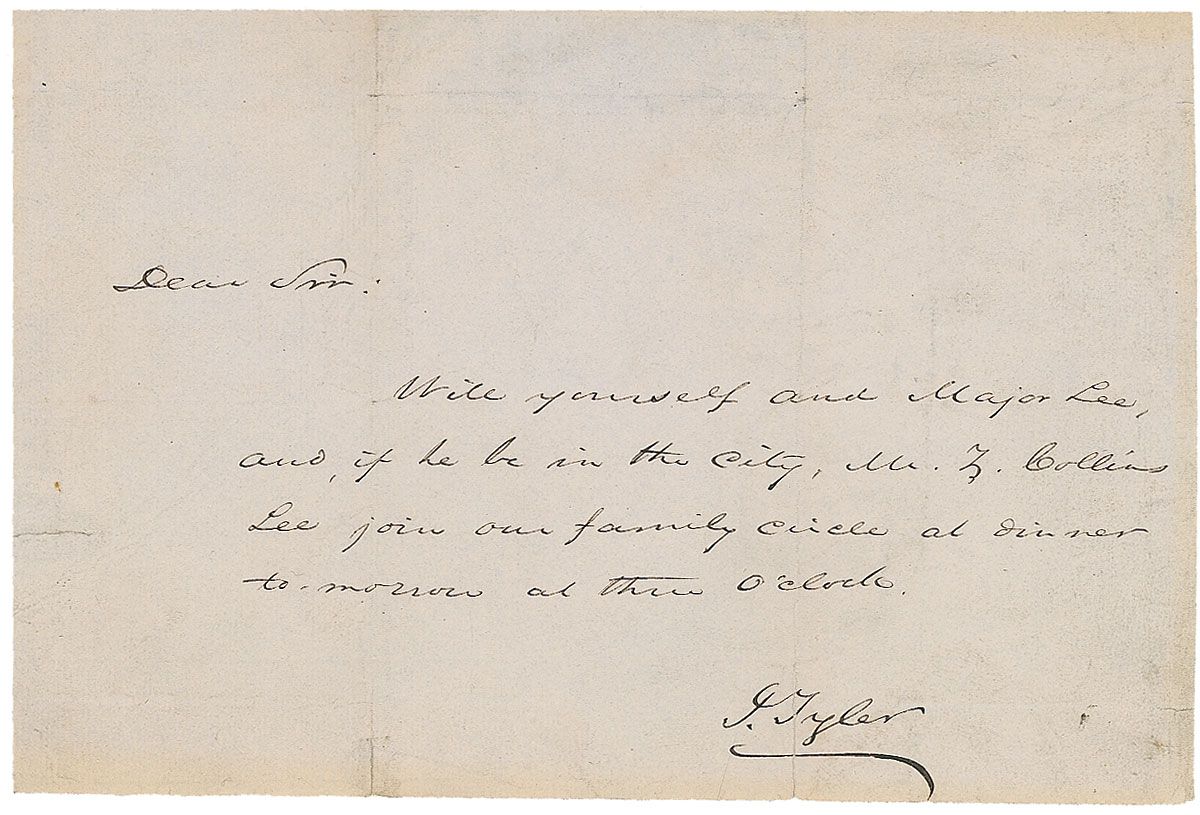 Dear Sir:
Will yourself and Major Lee,
and, if he be in the city, Mr. Z. Collins
Lee join our family circle at dinner
to-morrow at three O'clock.
J. Tyler